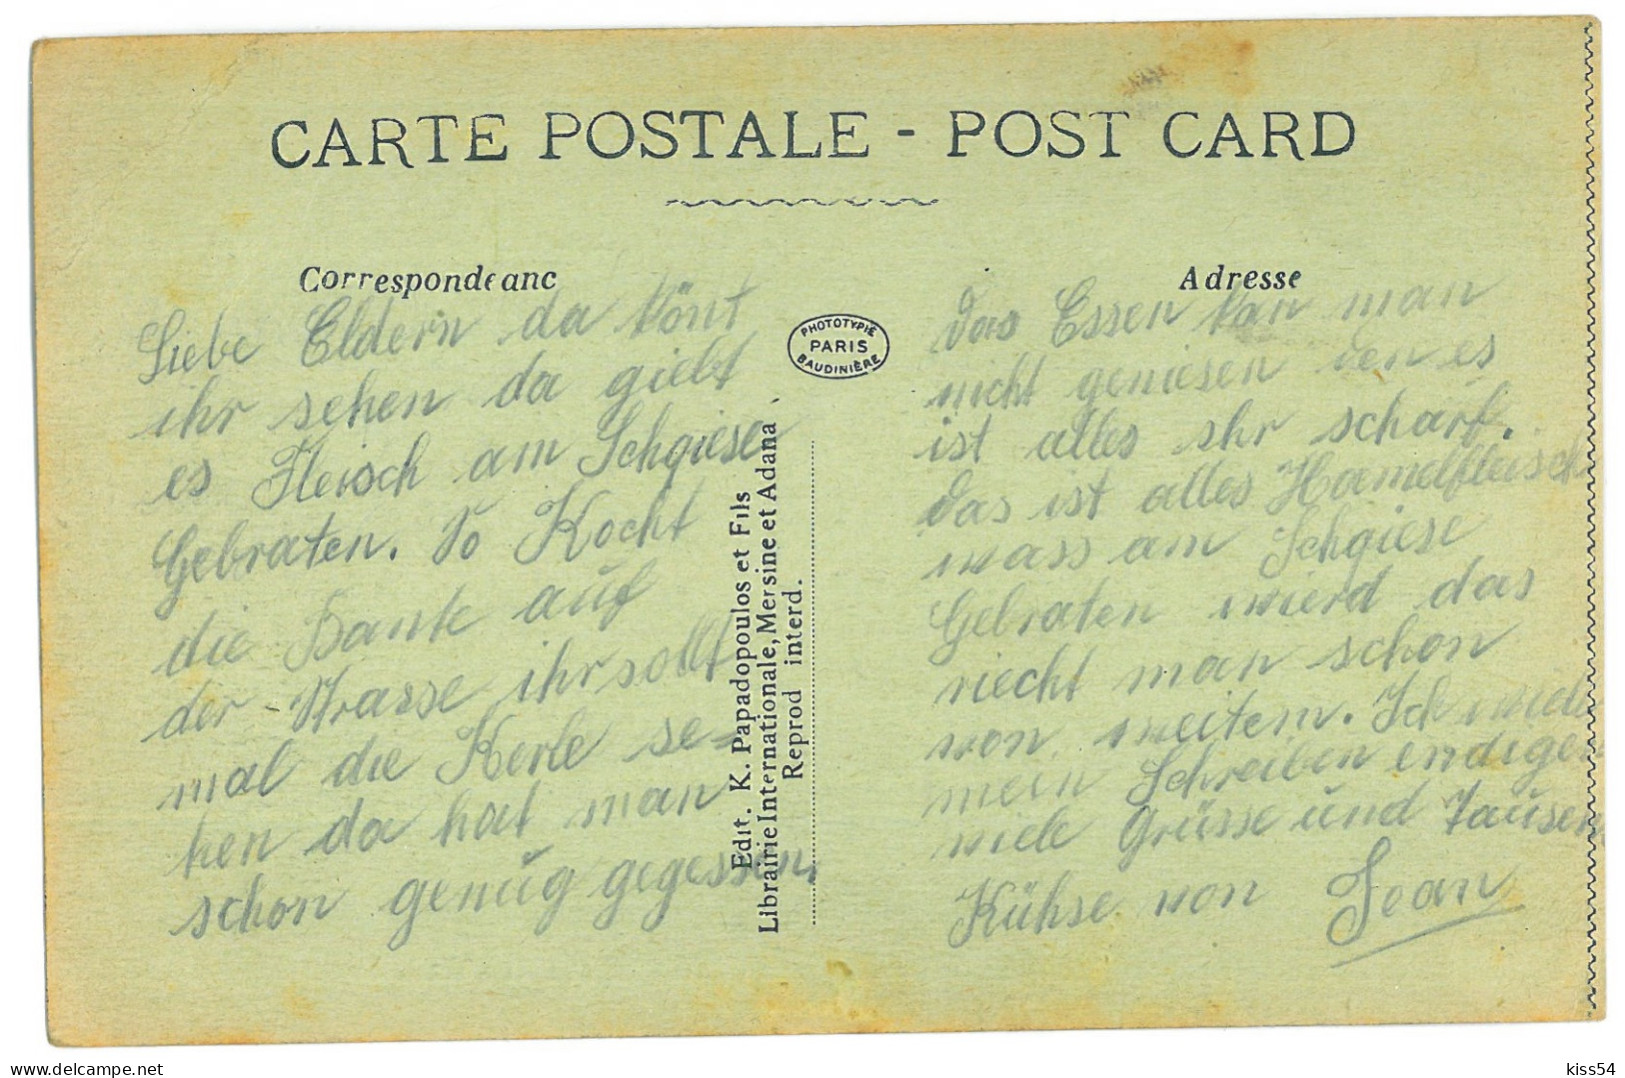 CARTE POSTALE - POST CARD
Correspondeanc
Liebe Eldern da könt
ihr sehen da giebt
es Fleisch am Schgiese
Gebraten. So Kocht
die Bante auf
der Strasse ihr sollt
mal die Kerle se-
hen da hat man
schon genug gegessen.
PHOTOTYPIE
PARIS
BAUDINIÈRE
Edit. K. Papadopoulos et Fils
Librairie Internationale, Mersine et Adana
Reprod interd.
Adresse
das Essen kan man
nicht geniesen den es
ist alles shr scharf.
das ist alles Hamelfleisch
wass am Schgiese
Gebraten wierd das
riecht man schon
von weitem. Ich
mein Schreiben endigen
viele Grüsse und Tausen
Kühse von Jean
kiss54